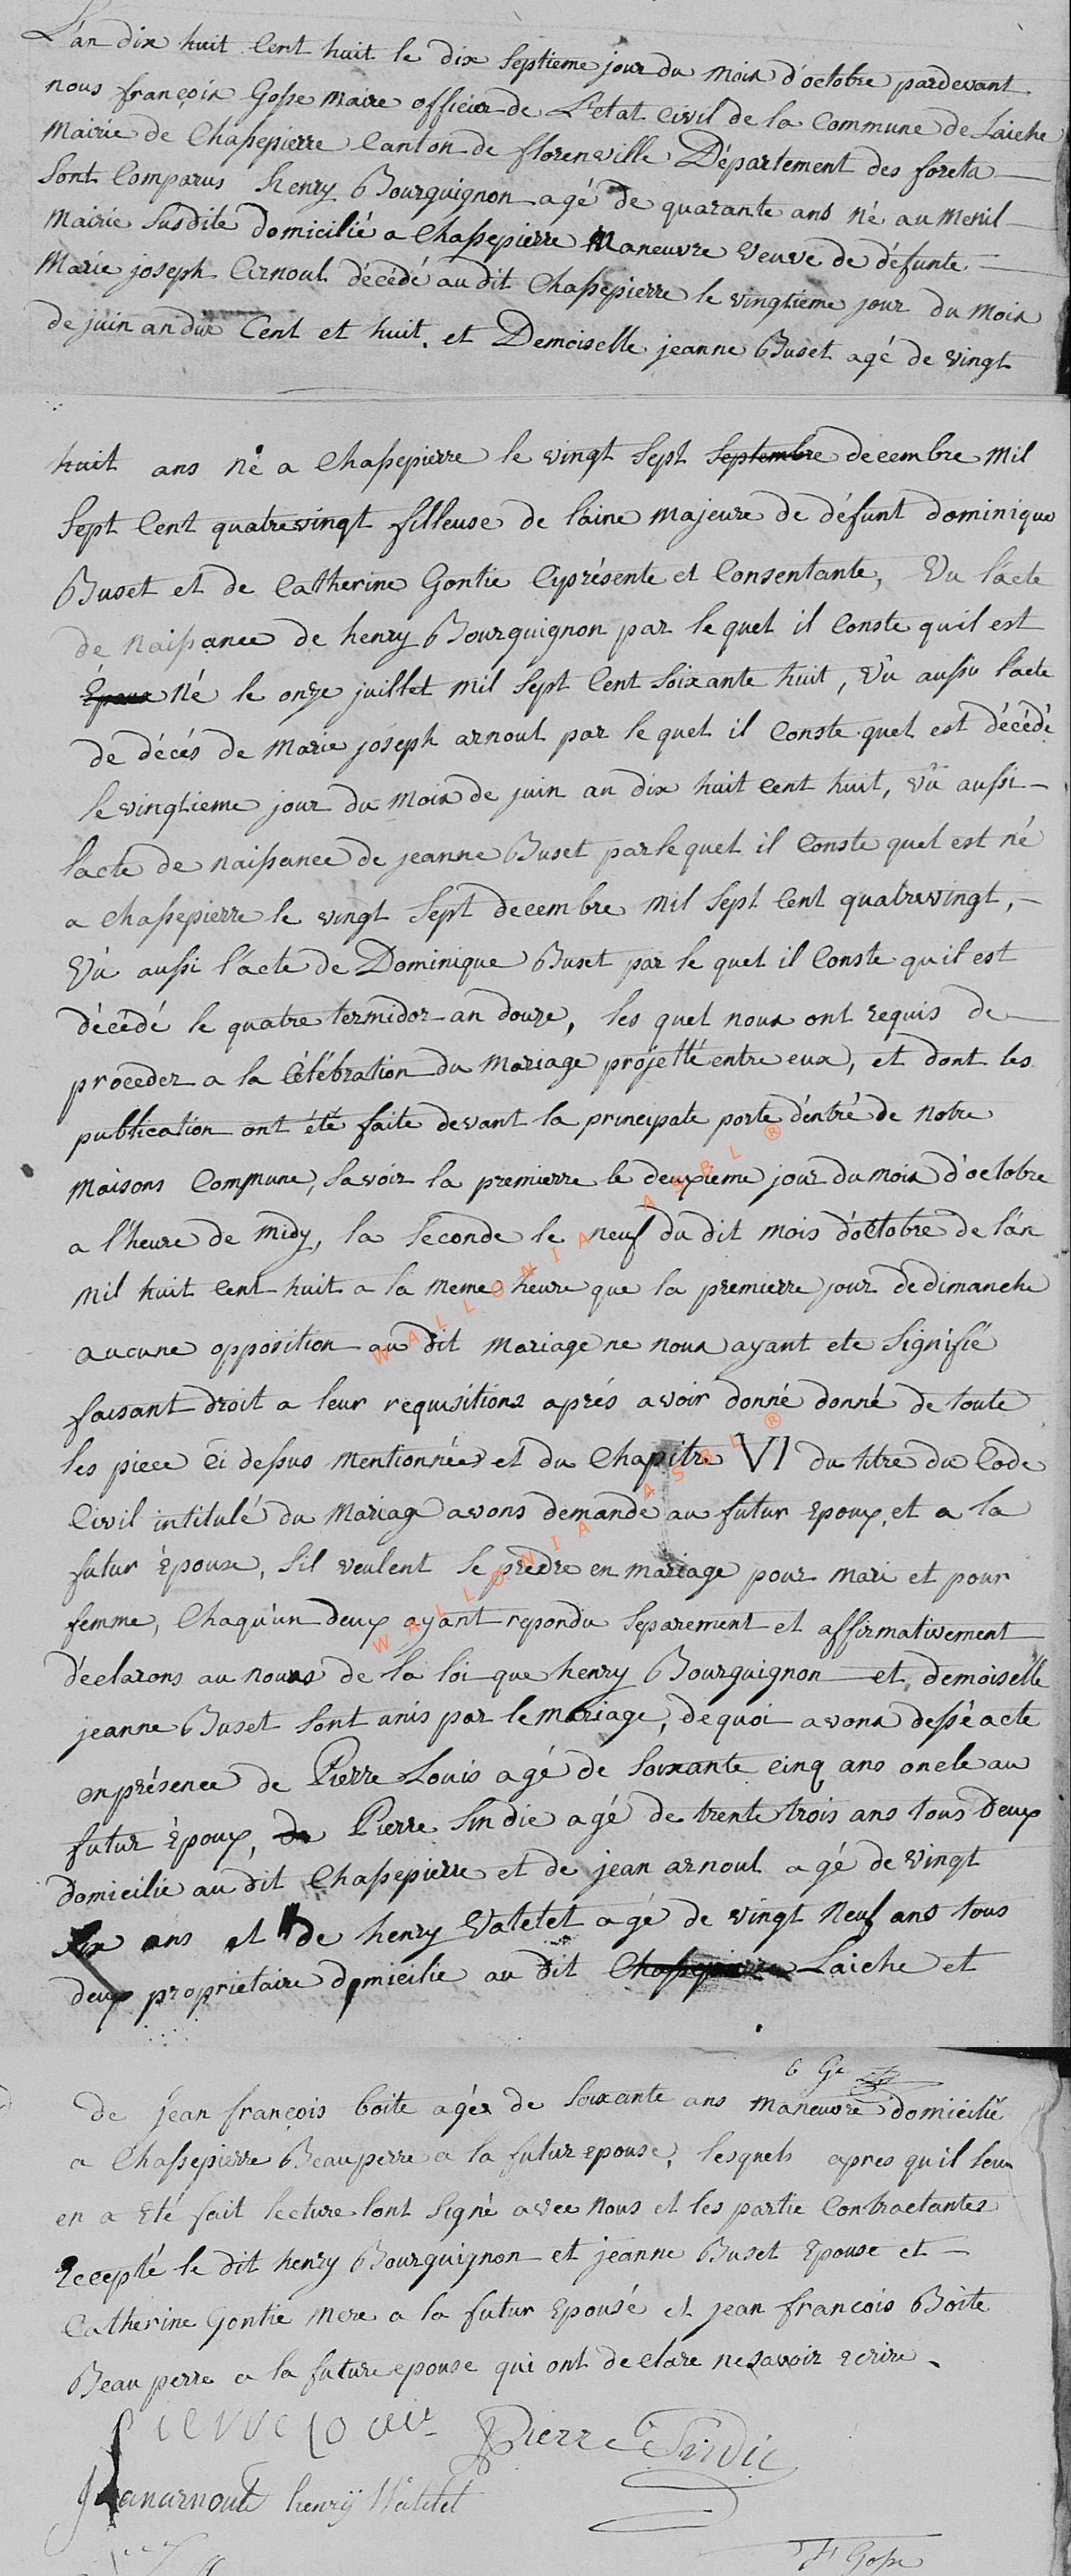 L'an dix huit Cent huit le dix Septieme jour du mois d'octobre pardevant
nous françois Gosse Maire officier de L'etat Civil de la Commune de Laiche
Mairie de Chassepierre Canton de florenville Département des forets
Sont Comparus henry Bourguignon agé de quarante ans né au Menil
Mairie Susdite domicilié a Chassepierre Maneuvre veuve de défunte
Marie joseph Arnoul décédé au dit Chassepierre le vingtieme jour du mois
de juin an dix Cent et huit. et Demoiselle jeanne Buset agé de vingt
huit ans né a Chassepierre le vingt Sept Septembre decembre Mil
Sept Cent quatrevingt filleuse de laine Majeure de défunt dominique
Buset et de Catherine Gontie Cyprésente et Consentante, Vu l'acte
de Naissance de henry Bourguignon par le quel il Conste quil est
Epoux Né le onze juillet Mil Sept Cent Soixante huit, Vu aussu l'acte
de décés de Marie joseph arnoul par le quel il Conste quel est décédé
le vingtieme jour du Mois de juin an dix huit Cent huit, Vu aussi
lacte de naissance de jeanne Buset par lequel il Conste quel est né
a Chassepierre le vingt Sept decembre Mil Sept Cent quatrevingt,
Vu aussi l'acte de Dominique Buset par le quel il Conste quil est
décédé le quatre termidor an douze, les quel nous ont requis de
proceder a la Célébration du Mariage projetté entre eux, et dont les
publication ont été faite devant la principale porte d'entré de Notre
Maisons Commune, Savoir la premierre le deuxieme jour du mois d'octobre
a l'heure de midy, la Seconde le neuf du dit mois d'octobre de l'an
Mil huit Cent huit a la Meme heure que la premierre jour de dimanche
aucune opposition au dit Mariage ne nous ayant ete Signifié
faisant droit a leur requisitions aprés avoir donné donné de toute
les piece Ci dessus Mentionnées et du Chapitre VI du titre du Code
Civil intitulé du Mariag avons demande au futur Epoux, et a la
futur Epouse, Sil veulent Se predre en mariage pour Mari et pour
femme, Chaqu'un deux ayant repondu Separement et affirmativement
déclarons au nous de la loi que henry Bourguignon et demoiselle
jeanne Buset Sont unis par le mariage, de quoi avons dessé acte
en présence de Pierre Louis agé de Soixante cinq ans oncle au
futur Epoux, de Pierre Sindic agé de trente trois ans tous Deux
domicilie au dit Chassepierre et de jean arnoul agé de Vingt
Six ans et de henry Vatelet agé de vingt Neuf ans tous
deux proprietaire domicilie au dit Chassepierre Laiche et
de jean françois boite agée de Soixante ans Maneuvre domicilié
a Chassepierre Beauperre a la futur epouse, lesquels apres quil leur
en a Eté fait lecture lont Signé avec Nous et les partie Contractantes
Eccepté le dit henry Bourguignon et jeanne Buset Epouse et
Catherine Gontie Mere a la futur Epousé et jean francois Boite
Beau perre a la future epouse qui ont declare ne savoir ecrire.
Pierre Louis Pierre Sindic
Jean arnoult henrÿ Watelet
F Gosse
WALLONIA ASBL ®
WALLONIA ASBL ®